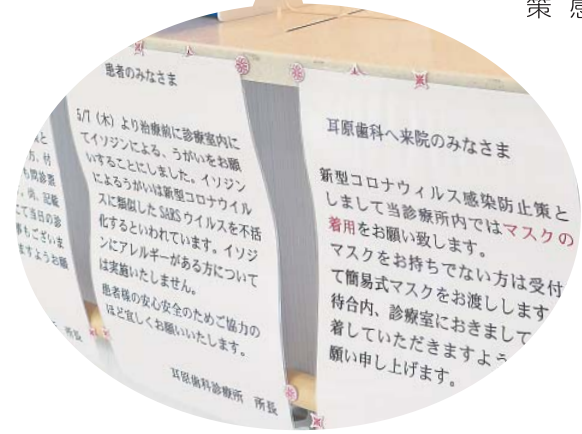 策 感
患者のみなさま
5/7（木）より治療前に診療室内に
てイソジンによる、うがいをお願
いすることにしました。イソジン
によるうがいは新型コロナウイル
スに類似したSARSウイルスを不活
化するといわれています。イソジ
ンにアレルギーがある方について
は実施いたしません。
患者様の安心安全のためご協力の
ほど宜しくお願いいたします。
耳原歯科診療所　所長
耳原歯科へ来院のみなさま
新型コロナウィルス感染防止策と
しまして当診療所内ではマスクの
着用をお願い致します。
マスクをお持ちでない方は受付
て簡易式マスクをお渡しします
待合内、診療室におきまして
着していただきますよう
願い申し上げます。
と
方、付
も問診票
、病、記載
て当日の診
事もございま
ますようお願
所長